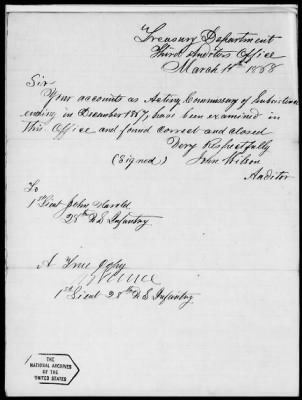 Treasury Department
Third Auditors Office
March 1868
Sir
Your accounts as Acting Commissary of Subsistence
ending in December 1867, have been examined in
this Office and found correct and closed
Very Respectfully
(Signed) John Wilson
Auditor
To
1st Lieut John Harold
28th U S Infantry
A True Copy
1st Lieut 28th U S Infantry
THE
NATIONAL ARCHIVES
OF THE
UNITED STATES